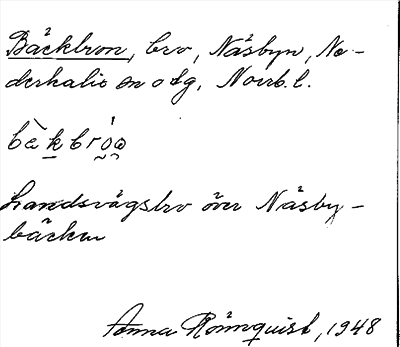 Bäckbron, bro, Näsbyn, Ne-
derkalix en o dg, Norrb. l.
bàkbróo
Landsvägsbro över Näsby-
bäcken
Anna Rönnquist, 1948